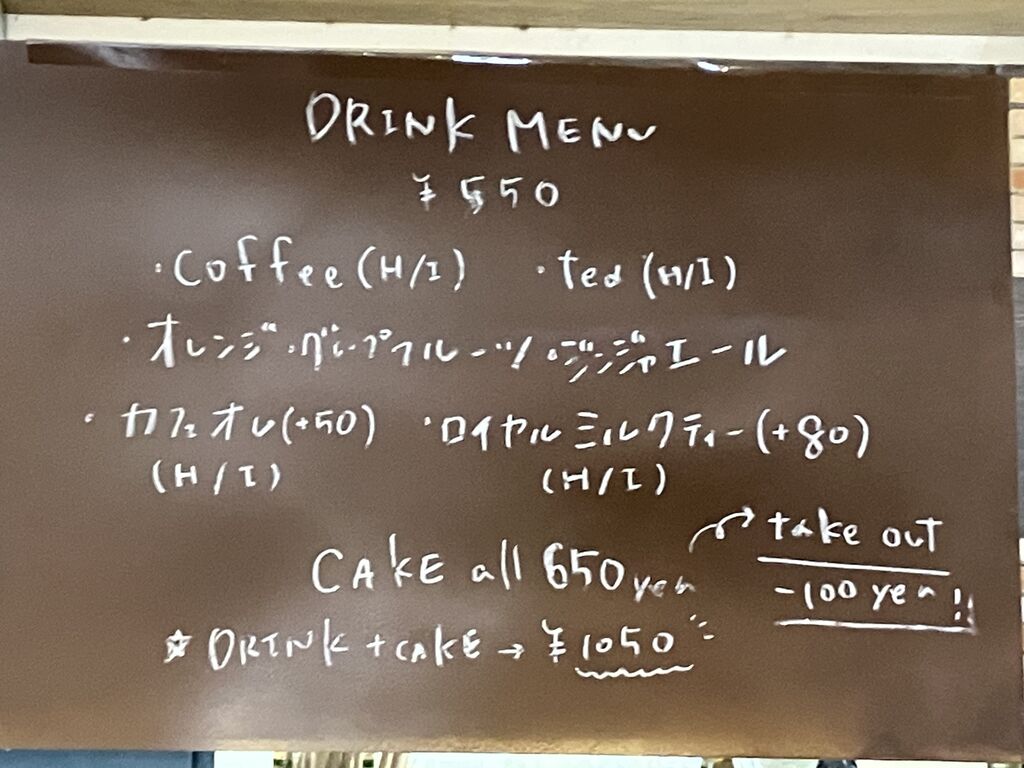 DRINK MENU
¥550
・coffee (H/I) ・tea (H/I)
・オレンジ・グレープフルーツ・ジンジャエール
・カフェオレ(+50) ・ロイヤルミルクティー(+80)
(H/I) (H/I)
CAKE all 650yen
take out
-100 yen!!
☆DRINK+CAKE→¥1050